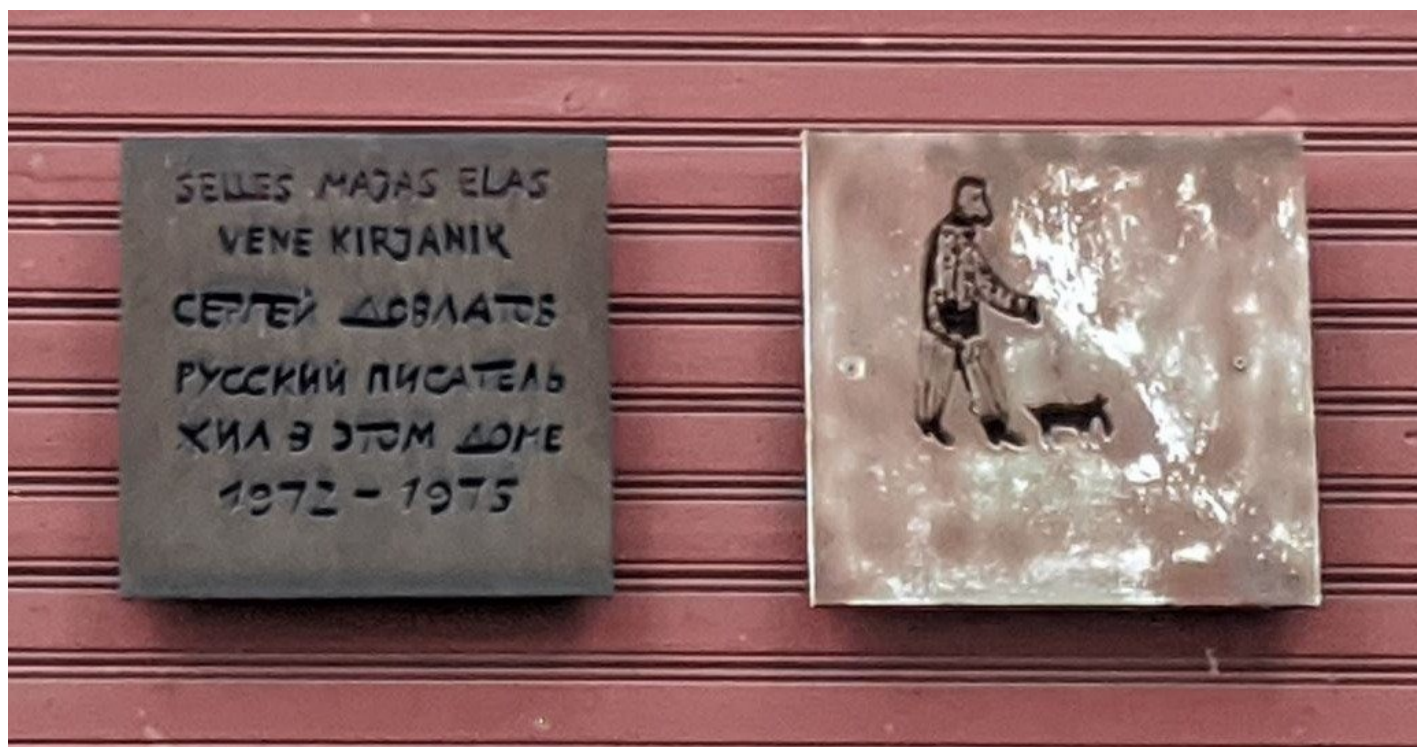 SELLES MAJAS ELAS
VENE KIRJANIK
СЕРГЕЙ ДОВЛАТОВ
РУССКИЙ ПИСАТЕЛЬ
ЖИЛ В ЭТОМ ДОМЕ
1972 – 1975